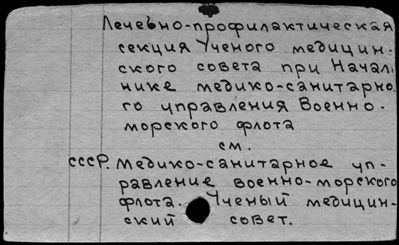 Лечебно-профилактическая
секция Ученого медицин-
ского совета при Начал
нике медико-санитарно
го управления Военно-
морского флота
см.
СССР. Медико-санитарное уп-
равление военно-морского
флота. Ученый медицин-
ский совет.